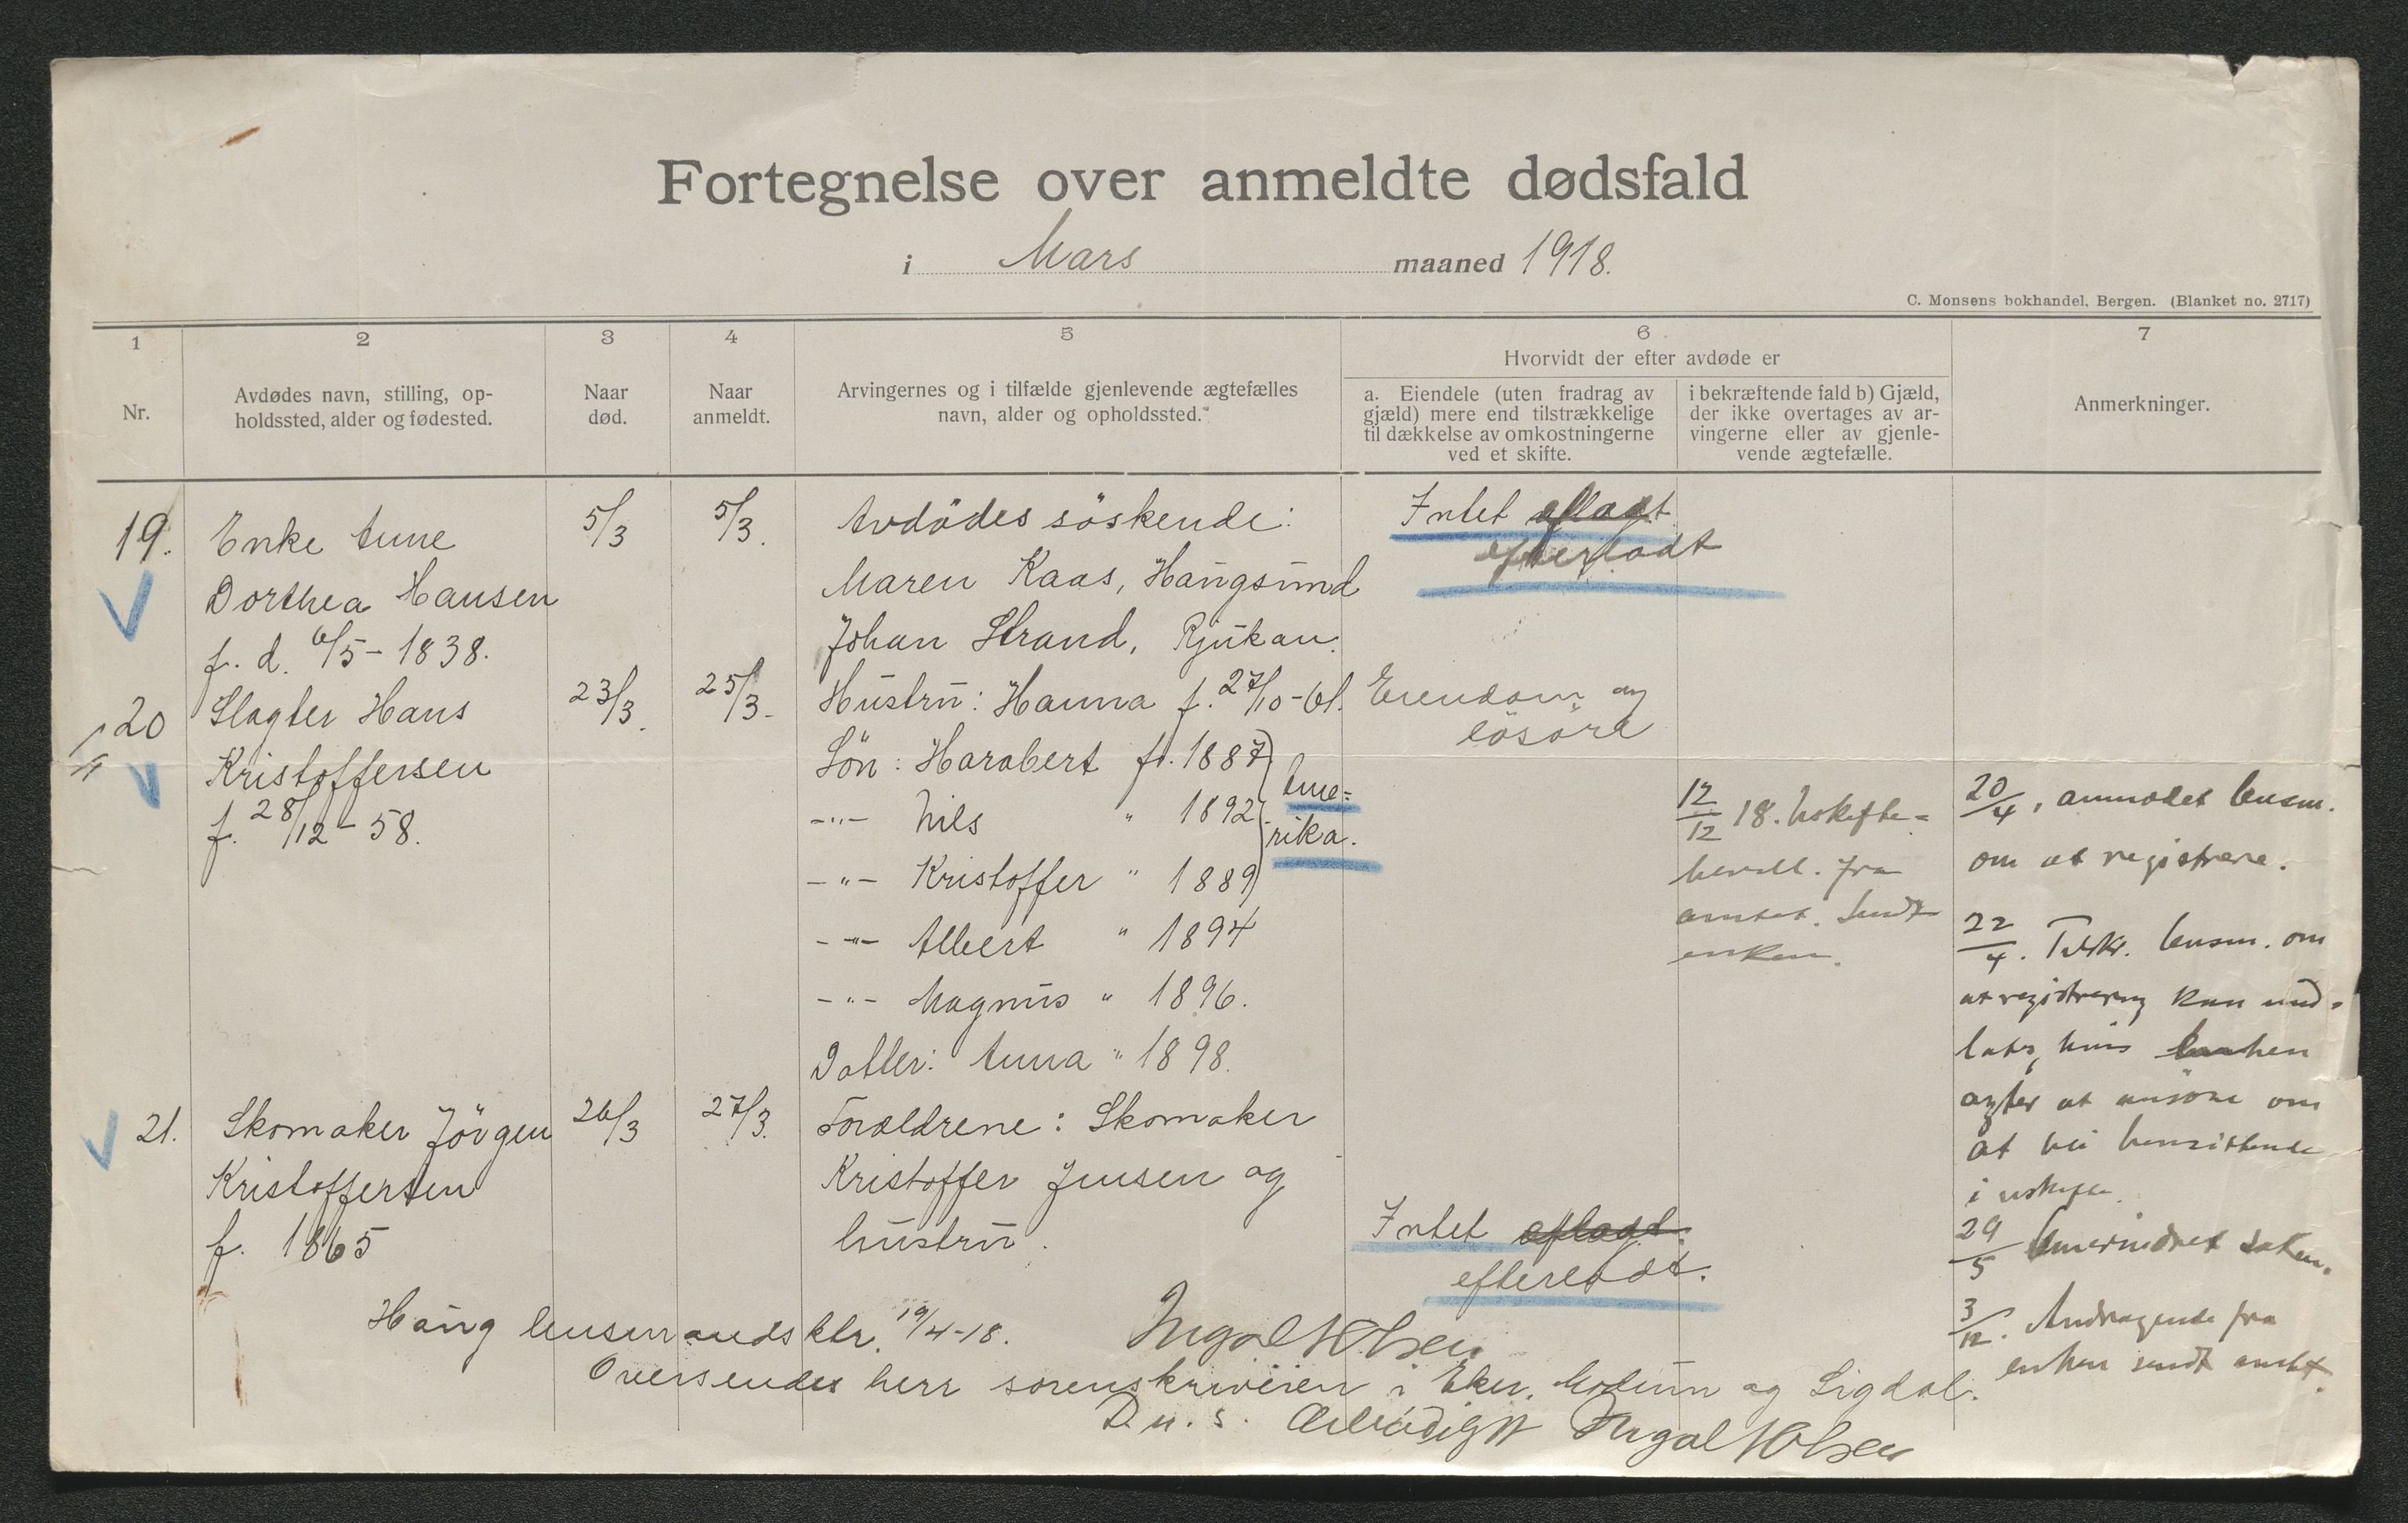 Fortegnelse over anmeldte dødsfald
i Mars maaned 1918.
C. Monsens bokhandel, Bergen. (Blanket no. 2717)
1
2
3
4
5
6
7
Nr.
Avdødes navn, stilling, op-
holdssted, alder og fødested.
Naar
død.
Naar
anmeldt.
Arvingernes og i tilfælde gjenlevende ægtefælles
navn, alder og opholdssted.
Hvorvidt der efter avdøde er
a. Eiendele (uten fradrag av
gjæld) mere end tilstrækkelige
til dækkelse av omkostningerne
ved et skifte.
i bekræftende fald b) Gjæld,
der ikke overtages av ar-
vingerne eller av gjenle-
vende ægtefælle.
Anmerkninger.
19.
Enke Anne
Dorthea Hansen
f. d. 6/5 - 1838.
5/3
5/3.
Avdödes söskende:
Maren Kaas, Haugsund
Johan Strand, Rjukan.
Intet efladt
efterladt
20
Slagter Hans
Kristoffersen
f. 28/12 - 58.
23/3.
25/3.
Hustru: Hanna f. 27/10 - 61.
Sön: Harabert f. 1887
-"- Nils " 1892
-"- Kristoffer " 1889
Ame=
rika.
-"- Albert " 1894
-"- Magnus " 1896.
Datter: Anna " 1898.
Eiendom og
lösöre
12/12 18. Uskifte=
bevill. fra
amtet. Sendt
enken.
20/4, anmodet lensm.
om at registrere.
22/4. Tilskr. lensm. om
at registrering kan und=
lates, hvis enken
agter at ansöke om
at bli hensittende
i uskifte.
29/5 saken.
3/12. Andragende fra
enken sendt amtet.
21.
Skomaker Jörgen
Kristoffersen
f. 1865
26/3
27/3.
Forældrene: Skomaker
Kristoffer Jensen og
hustru.
Intet efladt.
efterladt.
Haug lensmandsktr. 19/4-18.
Ingval Olsen
Oversendes herr sorenskriveren i Eker, Modum og Sigdal.
D. u. s. Ærbødigst Ingval Olsen